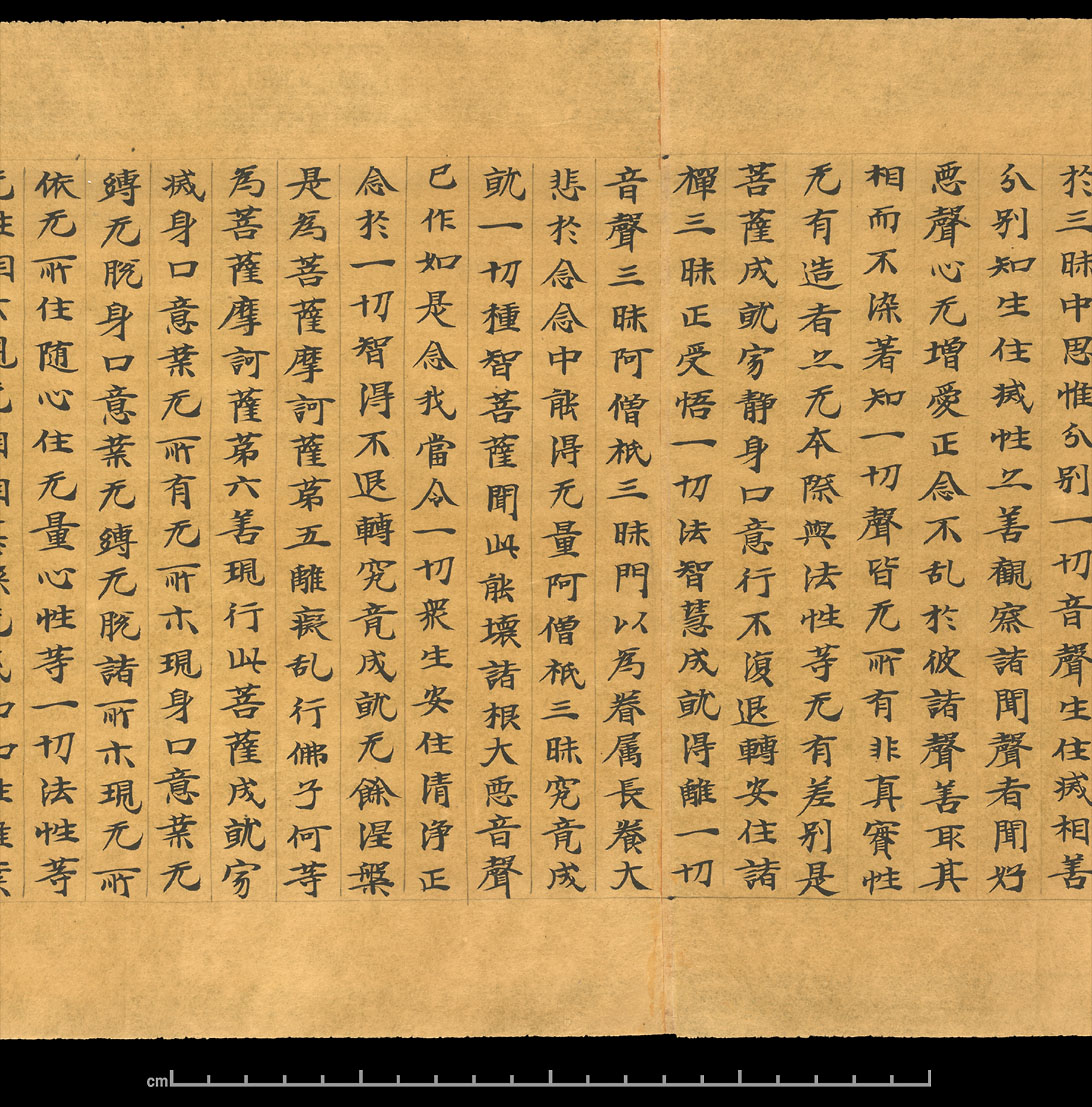 於三昧中思惟分別一切音聲生住滅相善
分別知生住滅性亦善觀察諸聞聲者聞好
惡聲心无增愛正念不乱於彼諸聲善取其
相而不染著知一切聲皆无所有非真實性
无有造者亦无本際與法性等无有差別是
菩薩成就寂静身口意行不復退轉安住諸
禪三昧正受悟一切法智慧成就得離一切
音聲三昧阿僧祇三昧門以為眷属長養大
悲於念念中能得无量阿僧祇三昧究竟成
就一切種智菩薩聞此能壞諸根大惡音聲
已作如是念我當令一切衆生安住清淨正
念於一切智得不退轉究竟成就无餘涅槃
是為菩薩摩訶薩第五離癡乱行佛子何等
為菩薩摩訶薩第六善現行此菩薩成就寂
滅身口意業无所有无所示現身口意業无
縛无脫身口意業无縛无脫諸所示現无所
依无所住随心住无量心性等一切法性等
cm